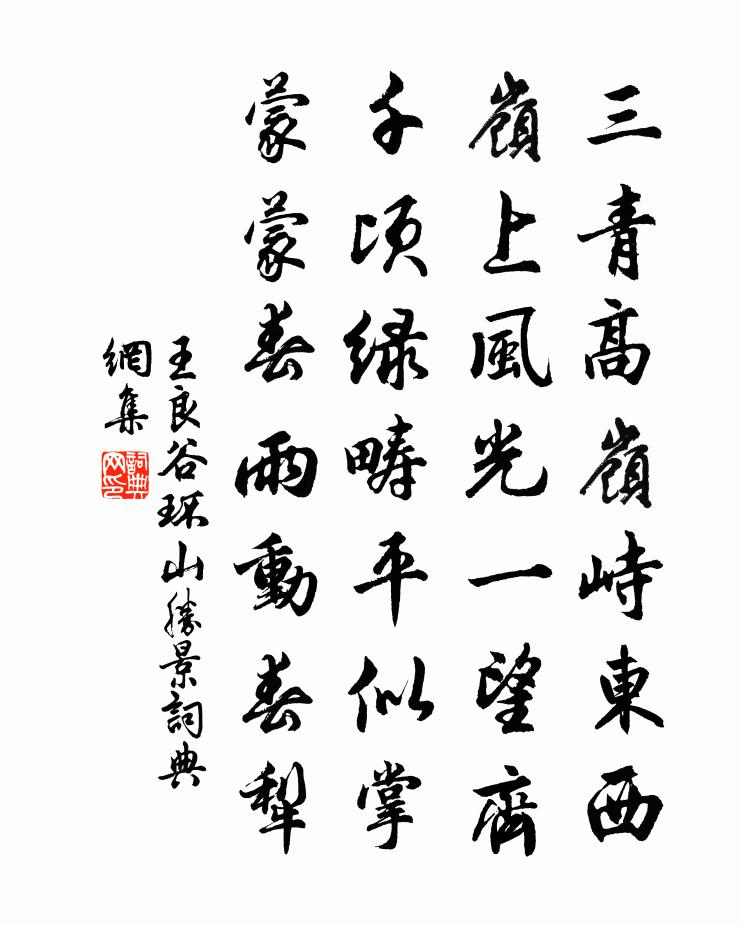 三青高嶺峙東西
嶺上風光一望齊
千頃緑疇平似掌
蒙蒙春雨動春犁
王良谷环山勝景詞典
網集
詞典
网印